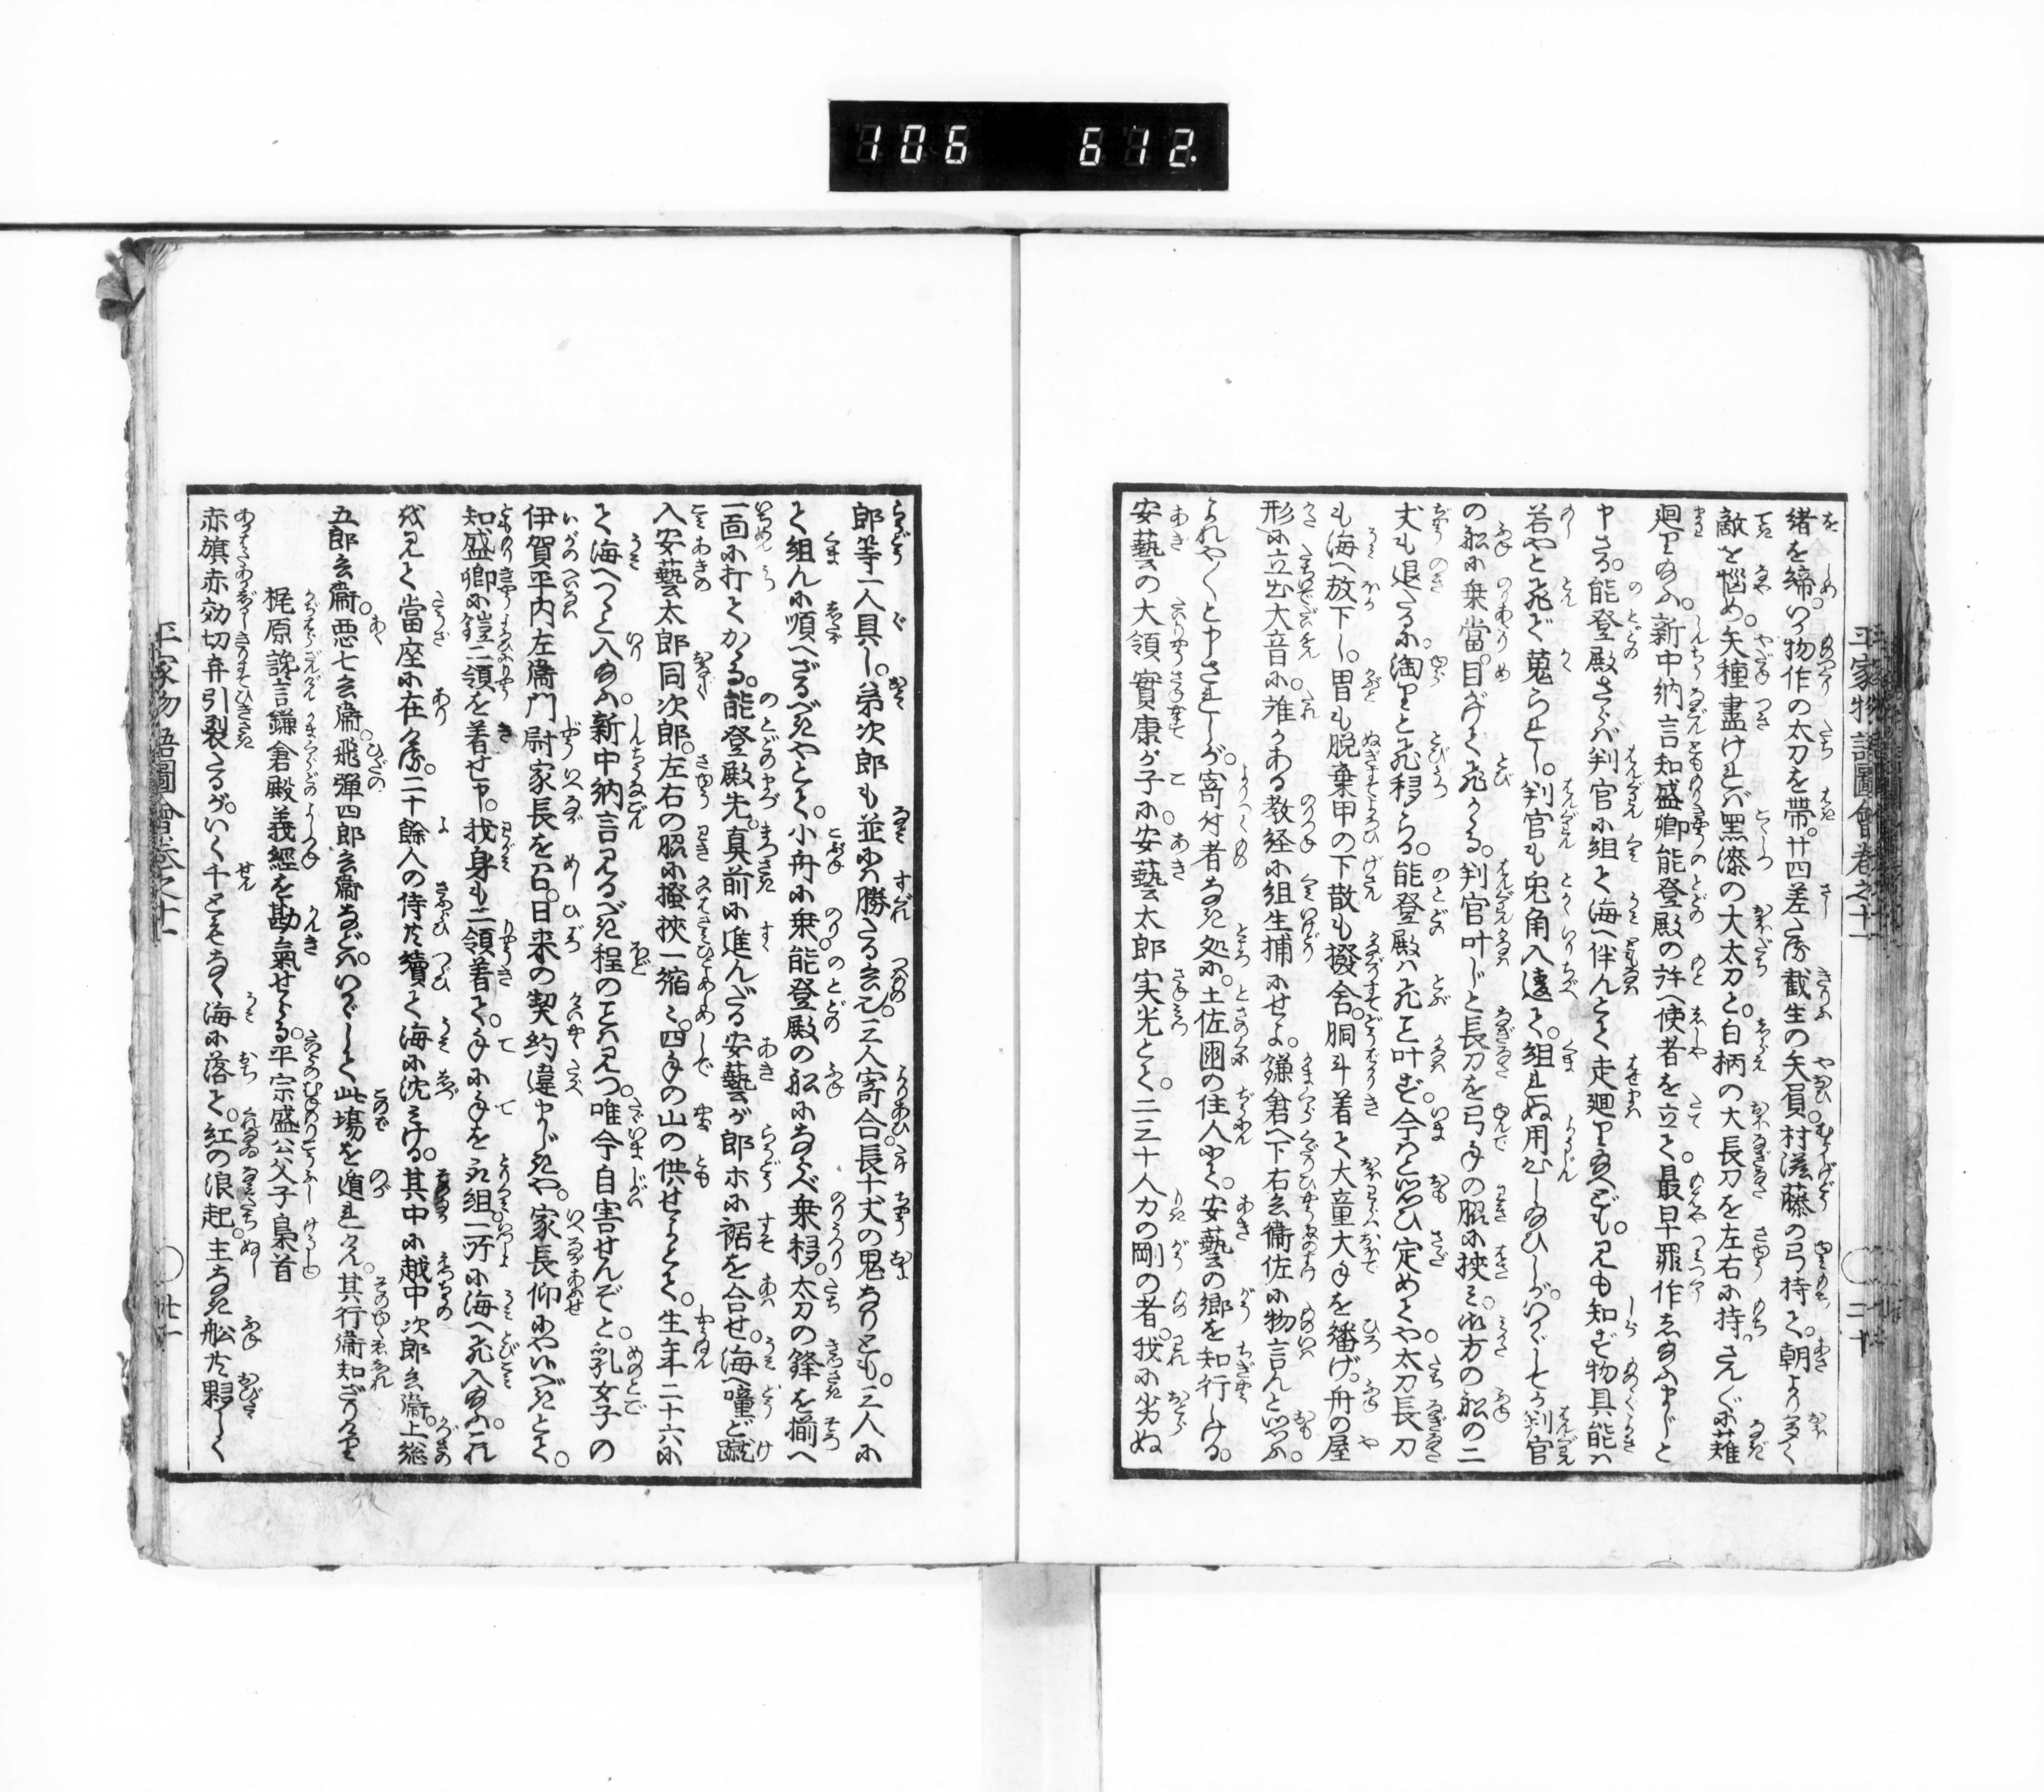 106 612.
平家物語圖會卷之十一
二十
緒を締。いか物作の太刀を帶。廿四差たる截生の矢員。村滋藤の弓持て。朝より多く
敵を惱め。矢種盡ければ黑漆の大太刀と。白柄の大長刀を左右に持。さんぐに薙
廻り給ふ。新中納言知盛卿能登殿の許へ使者を立て。最早罪作し給ふまじと
申さる。能登殿さらバ判官に組て海へ伴んとて走廻り給へども。見も知ず物具能ハ
若やと飛で蒐られし。判官も兎角入違て。組れぬ用心し給ひしが。いかゞしてか判官
の舩に乗當。目がけて飛かゝる。判官叶じと長刀を弓手の脇に挾ミ。御方の舩の二
丈も退たるに。淘りと飛移らる。能登殿ハ飛こと叶ず。今ハと思ひ定めてや太刀長刀
も海へ放下し。胄も脱棄甲の下散も撥舎。胴斗着て大童大手を繙げ。舟の屋
形に立出大音に。誰かある教経に組生捕にせよ。鎌倉へ下右兵衞佐に物言んと いふ。
よれやくと申されしが。寄付者なき処に。土佐國の住人にて。安藝の郷を知行しける。
安藝の大領實康が子に。安藝太郎実光とて。二三十人力の剛の者。我に劣ぬ
郎等一人具し。弟次郎も並には勝たる兵。三人寄合長十丈の鬼なりとも。三人に
て組んに順へざるべきやとて。小舟に乗。能登殿の舩にならべ乗移。太刀の鋒を揃へ
一面に打てかゝる。能登殿先。真前に進んだる安藝が郎等に裾を合せ。海へ噇ど蹴
入安藝太郎同次郎。左右の脇に掻挾一縮ミ。四手の山の供せよとて。生年二十六に
て海へつと入給ふ。新中納言見るべき程のことハ見つ。唯今自害せんぞと。乳女子の
伊賀平内左衞門尉家長を召。日来の契約違申まじきや。家長仰にや以べきとて。
知盛卿に鎧二領を着せ申。我身も二領着て。手に手を取組。一所に海へ飛入給ふ。これ
を見て當座に在ける。二十餘人の侍共續て海に沈ミける。其中に越中次郎兵衞。上総
五郎兵衞。悪七兵衞。飛彈四郎兵衞などハ。いかゞして此塲を遁れけん。其行衞知ざりけり
梶原讒言鎌倉殿義經を勘氣せらる。平宗盛公父子梟首
赤旗赤効切弃引裂たるが。いく千ともなく海に落て。紅の浪起。主なき舩共夥しく
平家物語圖會卷之十一
廿一